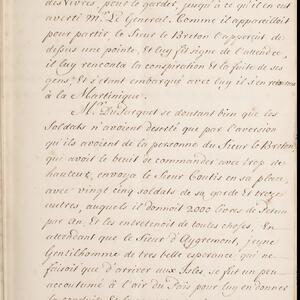 des Vivres, pour le garder, jusqu'à ce qu'il en eut
averti Mr. Le General. Comme il appareilloit
pour partir, le Sieur le Breton l'apperçut de
dessus une pointe, et luy fit signe de l'attendre,
il luy renconta la conspiration et la fuite de ses
gens et s'étant embarqué avec luy il s'en revin
à la Martinique.
Mr. Duparquet se doutant bien que les
Soldats n'avoient deserté que par l'aversion
qu'ils avoient de la personne du Sieur le Breton
qui avoit le bruit de commander avec trop de
hauteur, envoya le Sieur Coutis en sa place,
avec vingt cinq soldats de sa garde et treize
autres, auquels il donnoit 2000 livres de Petun
par An, Et les entretenoit de toutes choses, En
attendant que le Sieur d'Aygremont, jeune
Gentilhomme de tres belle esperance, qui ne
faisoit que d'arriver aux Isles se fut un peu
accoutumé à l'air du Païs pour luy en donner
la conduite